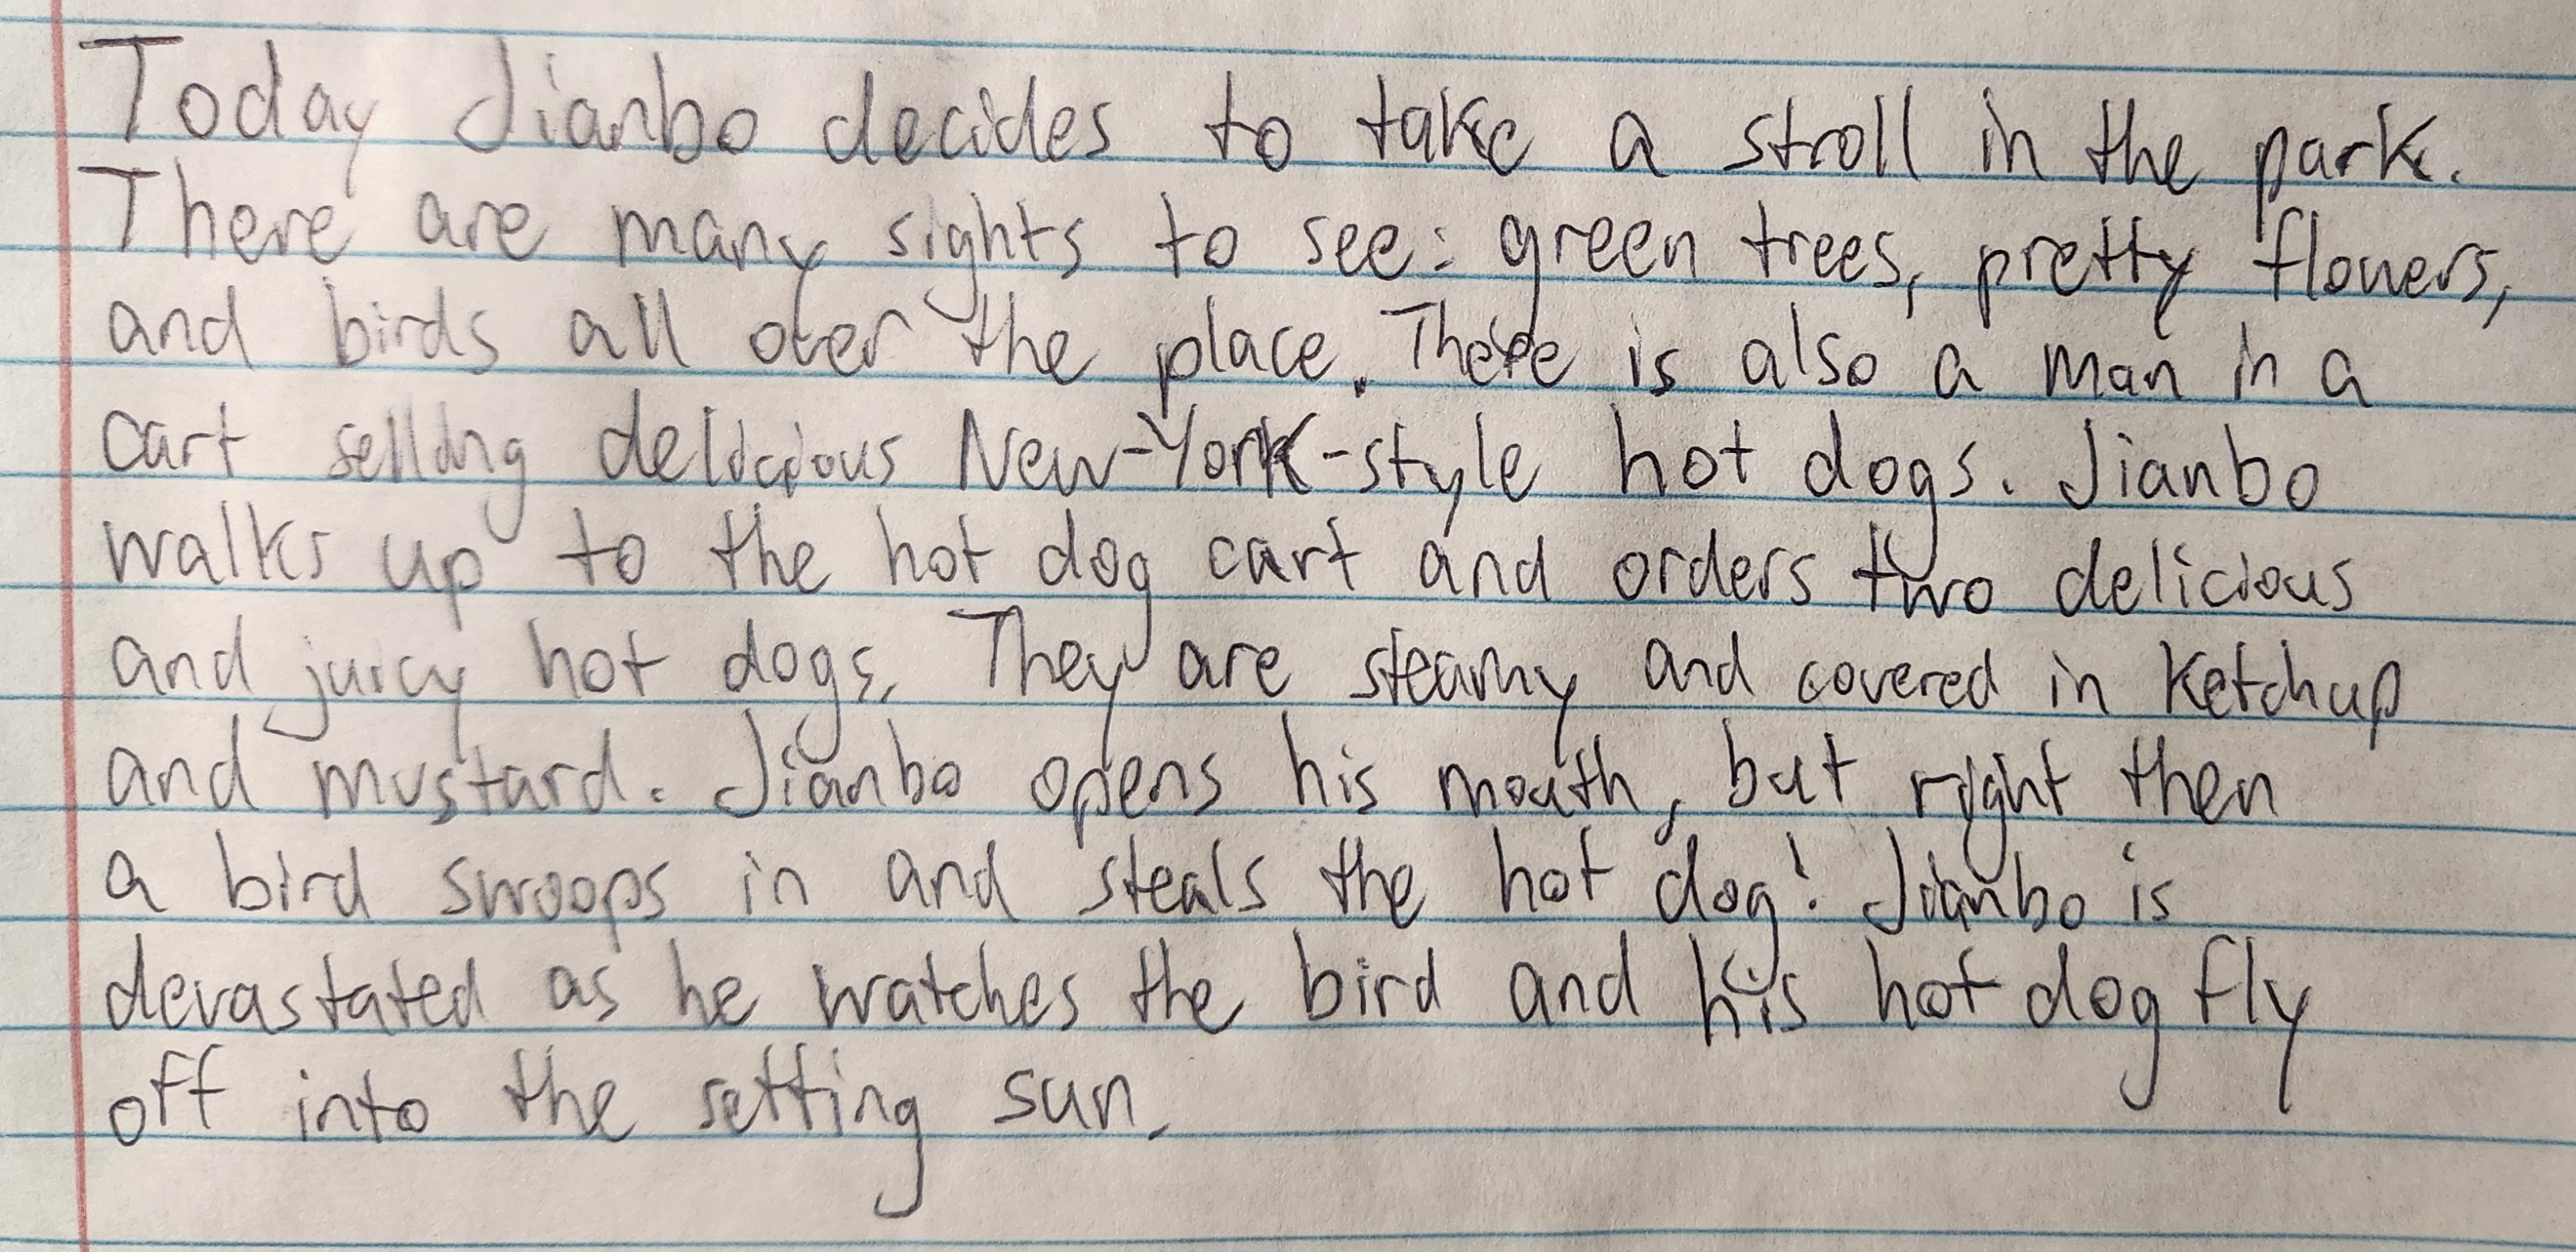 Today Jianbo decides to take a stroll in the park.
There are many sights to see: green trees, pretty flowers,
and birds all over the place. There is also a man in a
cart selling delicious New-York-style hot dogs. Jianbo
walks up to the hot dog cart and orders two delicious
and juicy hot dogs. They are steamy and covered in ketchup
and mustard. Jianbo opens his mouth, but right then
a bird swoops in and steals the hot dog! Jianbo is
devastated as he watches the bird and his hot dog fly
off into the setting sun.